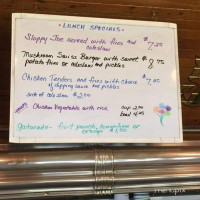 LUNCH SPECIALS
Sloppy Joe served with fries and $7.25
coleslaw
Mushroom Swiss Burger with sweet $8.75
potato fries or coleslaw and pickles
Chicken Tenders and fries with choice $7
of dipping sauce and pickles
side of cole slaw $2.00
Chicken Vegetable with rice cup 2.00
bowl 4.00
gatorade - fruit punch, lemon-lime or
orange